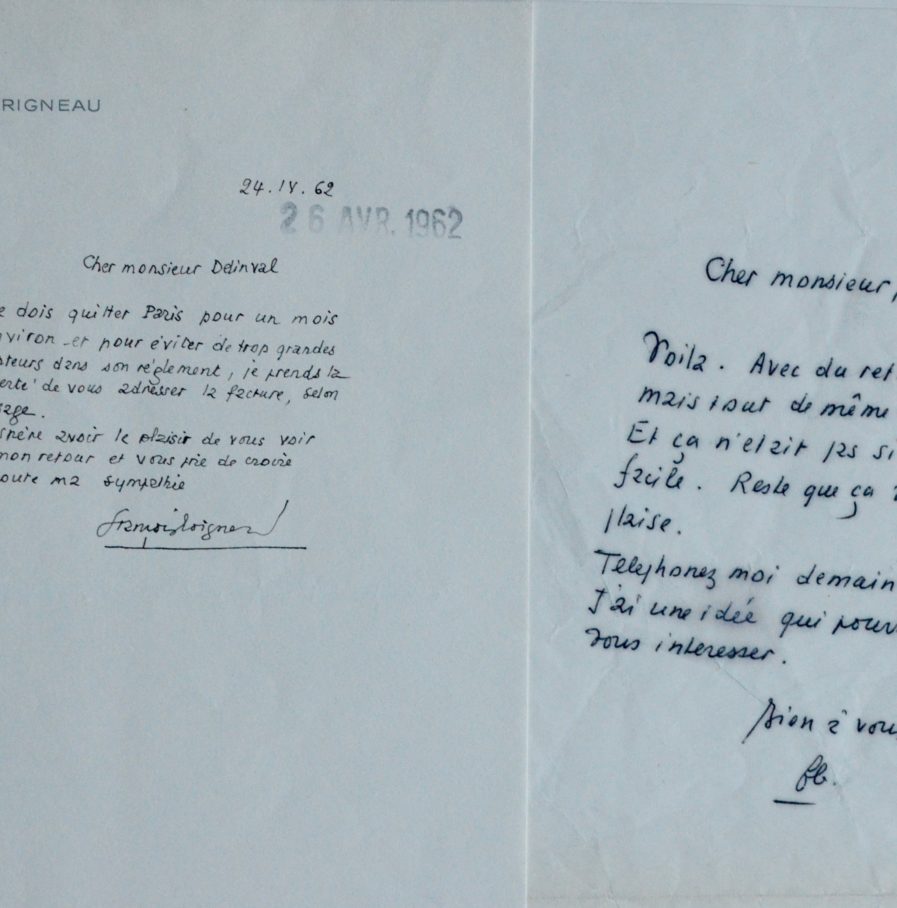 RIGNEAU
24.IV.62
26 AVR. 1962
Cher monsieur Delinval
e dois quitter Paris pour un mois
nviron et pour éviter de trop grandes
nteurs dans son réglement, je prends la
erté de vous adresser la facture, selon
sage.
spère avoir le plaisir de vous voir
mon retour et vous prie de croire
oute ma sympathie
Cher monsieur,
Voila. Avec du ret
mais tout de même
Et ça n'etait pas si
facile. Reste que ça
plaise.
Telephonez moi demain
J'ai une idée qui pourr
vous interesser.
Bien à vou